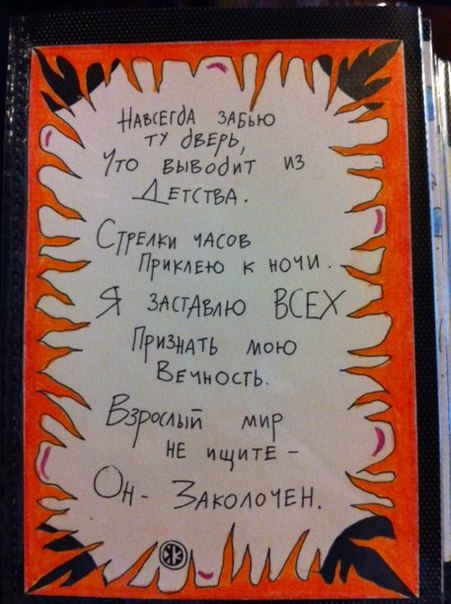 Навсегда забью
ту дверь,
Что выводит из
Детства.
Стрелки часов
Приклею к ночи.
Я заставлю ВСЕХ
Признать мою
Вечность.
Взрослый мир
не ищите –
Он - Заколочен.